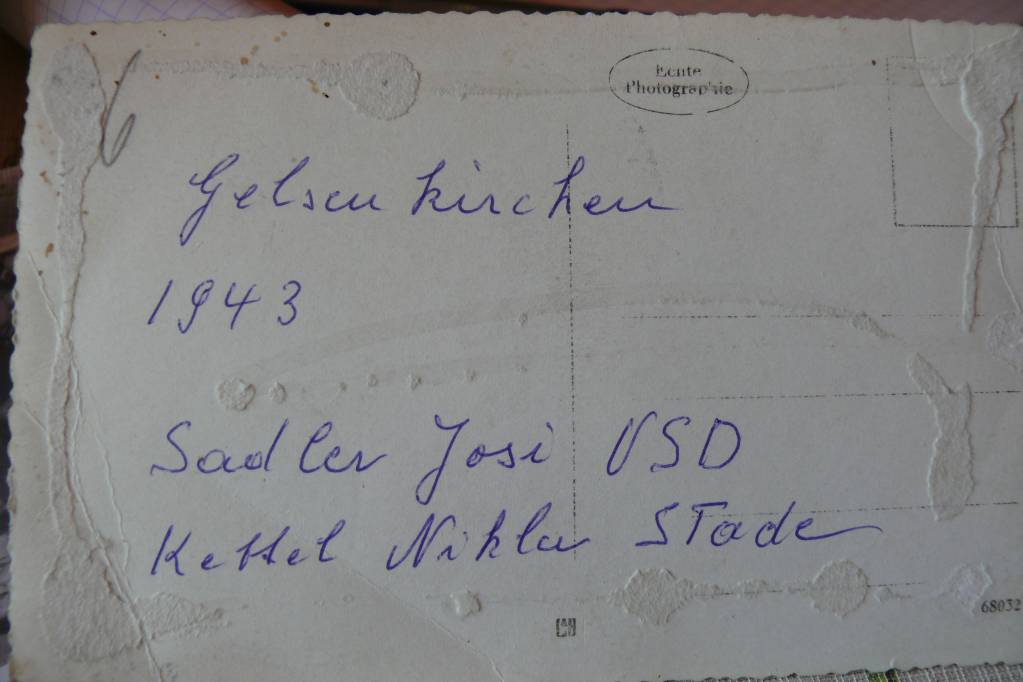 Echte
Photographie
Gelsenkirchen
1943
Sadler Josi VSD
Kettel Niklu Stade
68032